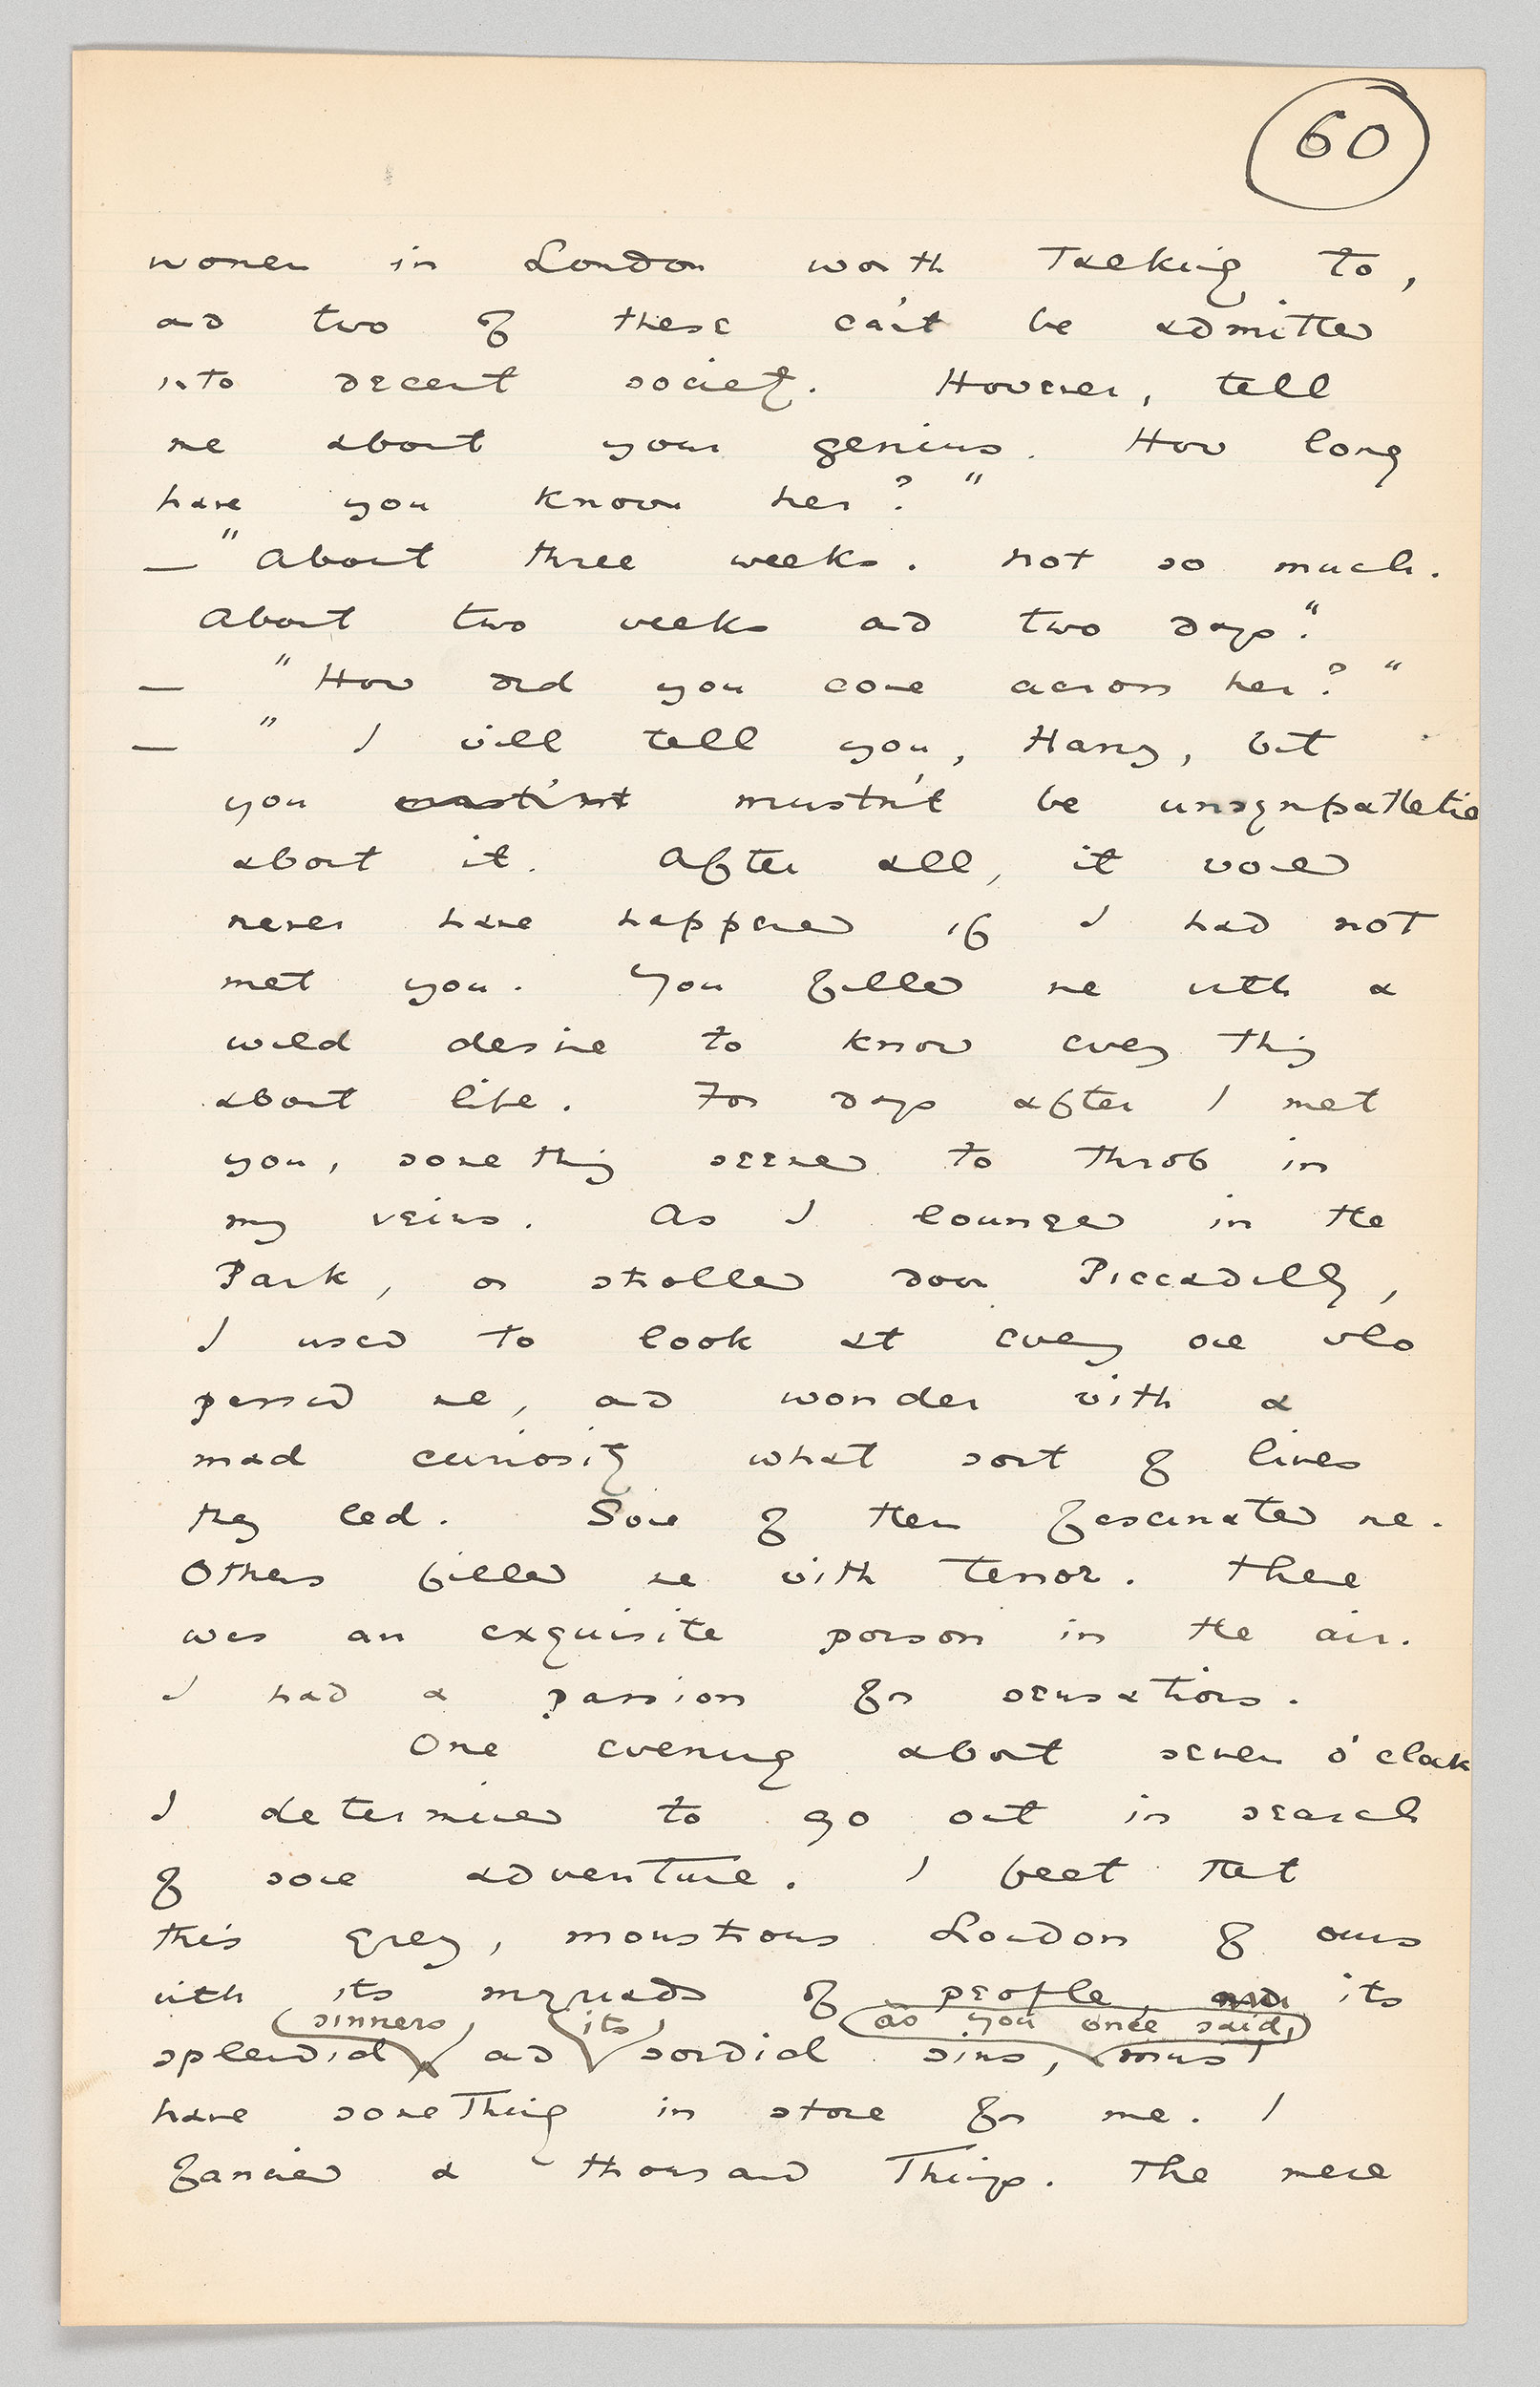 60
women in London worth talking to,
and two of these can't be admitted
into decent society. However, tell
me about your genius. How long
have you known her?"
— "About three weeks. Not so much.
About two weeks and two days."
— "How did you come across her?"
— "I will tell you, Harry, but
you mustn't be unsympathetic
about it. After all, it would
never have happened if I had not
met you. You filled me with a
wild desire to know every thing
about life. For days after I met
you, some thing seemed to throb in
my veins. As I lounged in the
Park, or strolled down Piccadilly,
I used to look at every one who
passed me, and wonder with a
mad curiosity what sort of lives
they led. Some of them fascinated me.
Others filled me with terror. There
was an exquisite poison in the air.
I had a passion for sensations.
One evening about seven o'clock
I determined to go out in search
of some adventure. I felt that
this grey, monstrous London of ours
with its myriads of people, its
sinners, its as you once said,
splendid and sordid sins, must
have something in store for me. I
fancied a thousand things. The mere